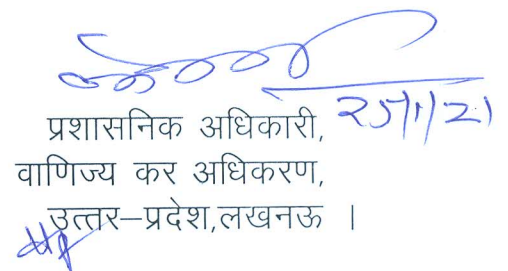 प्रशासनिक अधिकारी,
वाणिज्य कर अधिकरण,
उत्तर–प्रदेश,लखनऊ ।